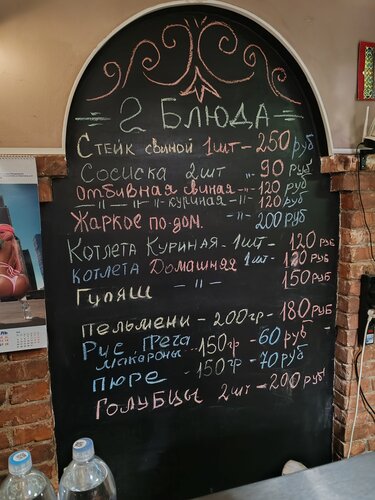 2 БЛЮДА
Стейк свиной 1шт - 250 руб
Сосиска 2шт -"- 90 руб
Отбивная свиная -"- 120 руб
-"- -"- куриная -"- 120 руб
Жаркое по-дом. -"- 200 руб
Котлета Куриная - 1шт - 120 руб
Котлета Домашняя 1шт - 120 руб
Гуляш -"- 150 руб
Пельмени - 200гр - 180 руб
Рис Греча
макароны 150гр - 60 руб
Пюре - 150гр - 70 руб
Голубцы 2шт - 200 руб